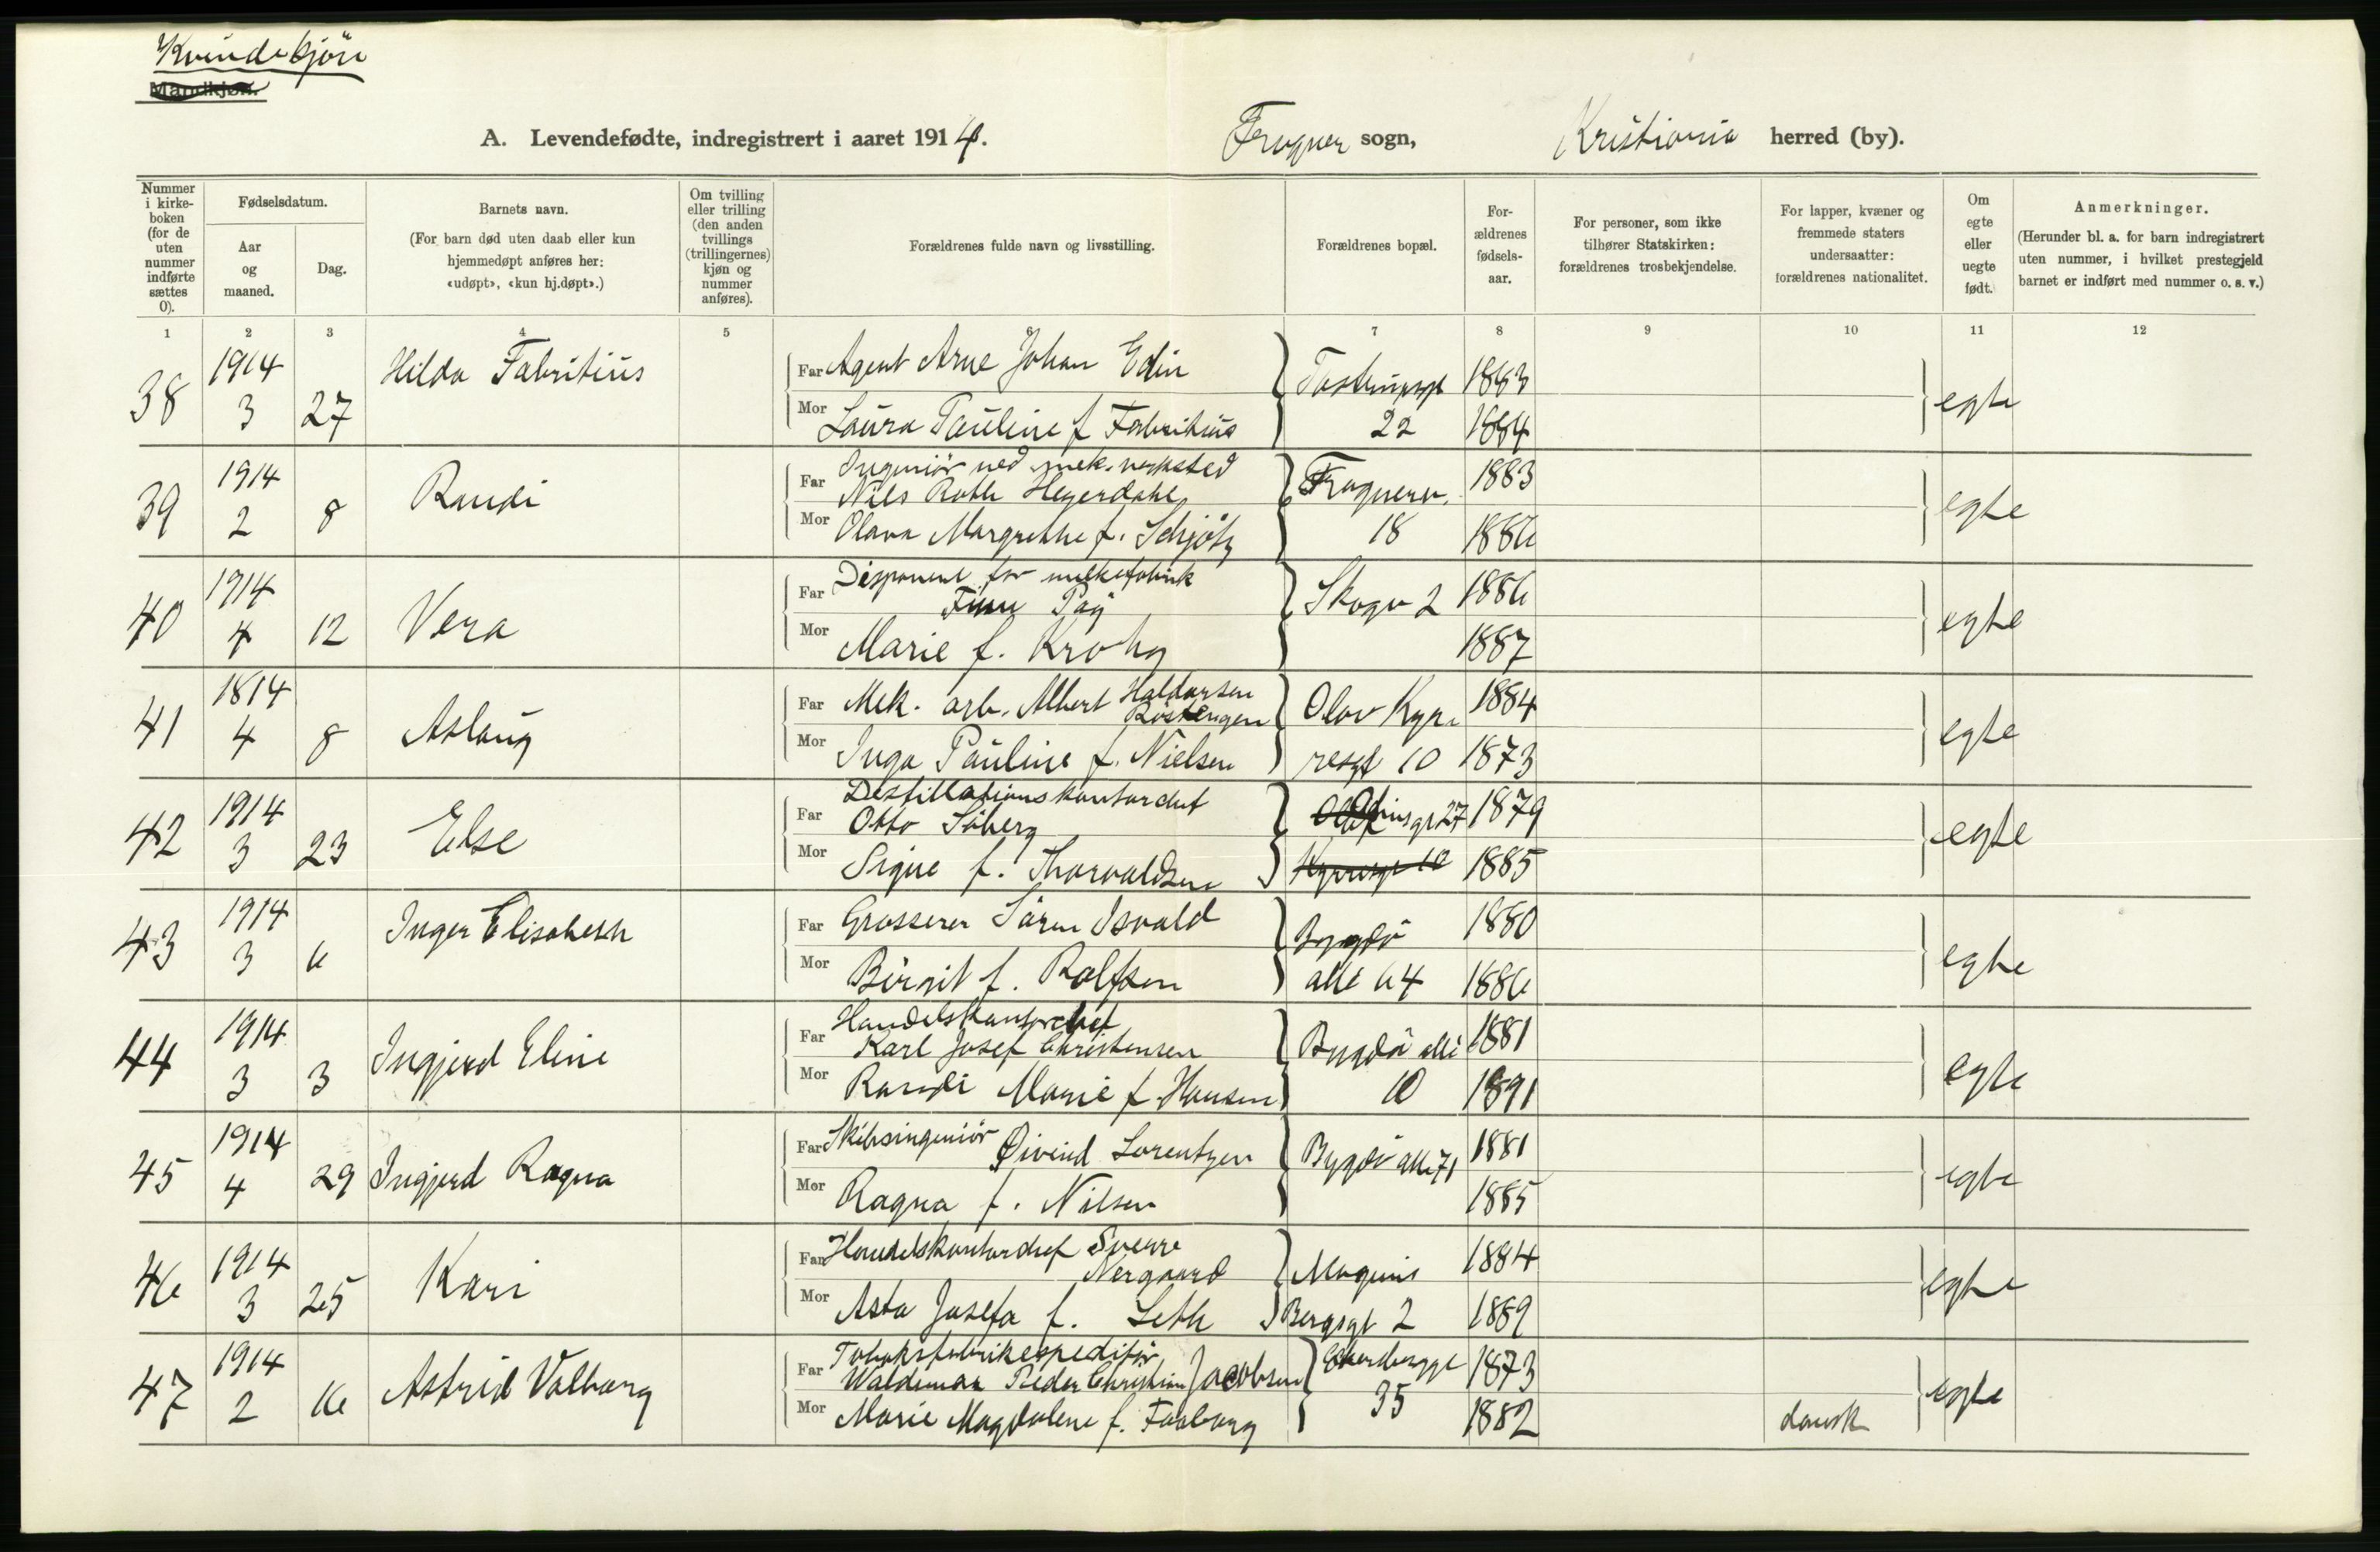 Kvindekjön
Mandkjøn.
A. Levendefødte, indregistrert i aaret 1914. Frogner sogn, Kristiania herred (by).
Nummer i kirkeboken (for de uten nummer indførte sættes 0).
Fødselsdatum.
Aar og maaned.
Dag.
Barnets navn.
(For barn død uten daab eller kun hjemmedøpt anføres her: «udøpt», «kun hj.døpt».)
Om tvilling eller trilling (den anden tvillings (trillingernes) kjøn og nummer anføres).
Forældrenes fulde navn og livsstilling.
Forældrenes bopæl.
Forældrenes fødselsaar.
For personer, som ikke tilhører Statskirken: forældrenes trosbekjendelse.
For lapper, kvæner og fremmede staters undersaatter: forældrenes nationalitet.
Om egte eller uegte født.
Anmerkninger.
(Herunder bl. a. for barn indregistrert uten nummer, i hvilket prestegjeld barnet er indført med nummer o. s. v.)
1 2 3 4 5 6 7 8 9 10 11 12
38 1914 3 27 Hilda Fabritius
Far Agent Arne Johan Edin 1883
Mor Laura Pauline f Fabritius 22 1884 egte
39 1914 2 8 Randi
Far Ingeniör ved mek. verksted
Nils Roth Heyerdahl Frognerv. 1883
Mor Olava Margrethe f. Schjötz 18 1886 egte
40 1914 4 12 Vera
Far Disponent for melkefabrik
Finn Pay Skogv 2 1886
Mor Marie f. Krohg 1887 egte
41 1814 4 8 Aslaug
Far Mek. arb. Albert Haldorsen
Röstengen Olav Kyr- 1884
Mor Inga Pauline f. Nielsen resgt 10 1873 egte
42 1914 3 23 Else
Far Destillationskontorchef
Otto Siberg 27 1879
Mor Signe f. Thorvaldsen 1885 egte
43 1914 3 6 Inger Elisabeth
Far Grosserer Sören Isvald Bygdö 1880
Mor Birgit f. Rolfsen alle 64 1886 egte
44 1914 3 3 Ingjerd Eline
Far Handelskontorchef
Karl Josef Christensen Bygdö alle 1881
Mor Randi Marie f. Hansen 10 1891 egte
45 1914 4 29 Ingjerd Ragna
Far Skibsingeniör Øivind Lorentzen Bygdö alle 71 1881
Mor Ragna f. Nilsen 1885 egte
46 1914 3 25 Kari
Far Handelskontorchef Sverre
Nergaard Magnus 1884
Mor Asta Josefa f. Seth Bergsgt 2 1889 egte
47 1914 2 16 Astrid Valborg
Far Tobaksfabrikexpeditör
Waldemar Peder Christian Jacobsen Eckersbergsgt 1873
Mor Marie Magdalene f. Faaborg 35 1882 dansk egte